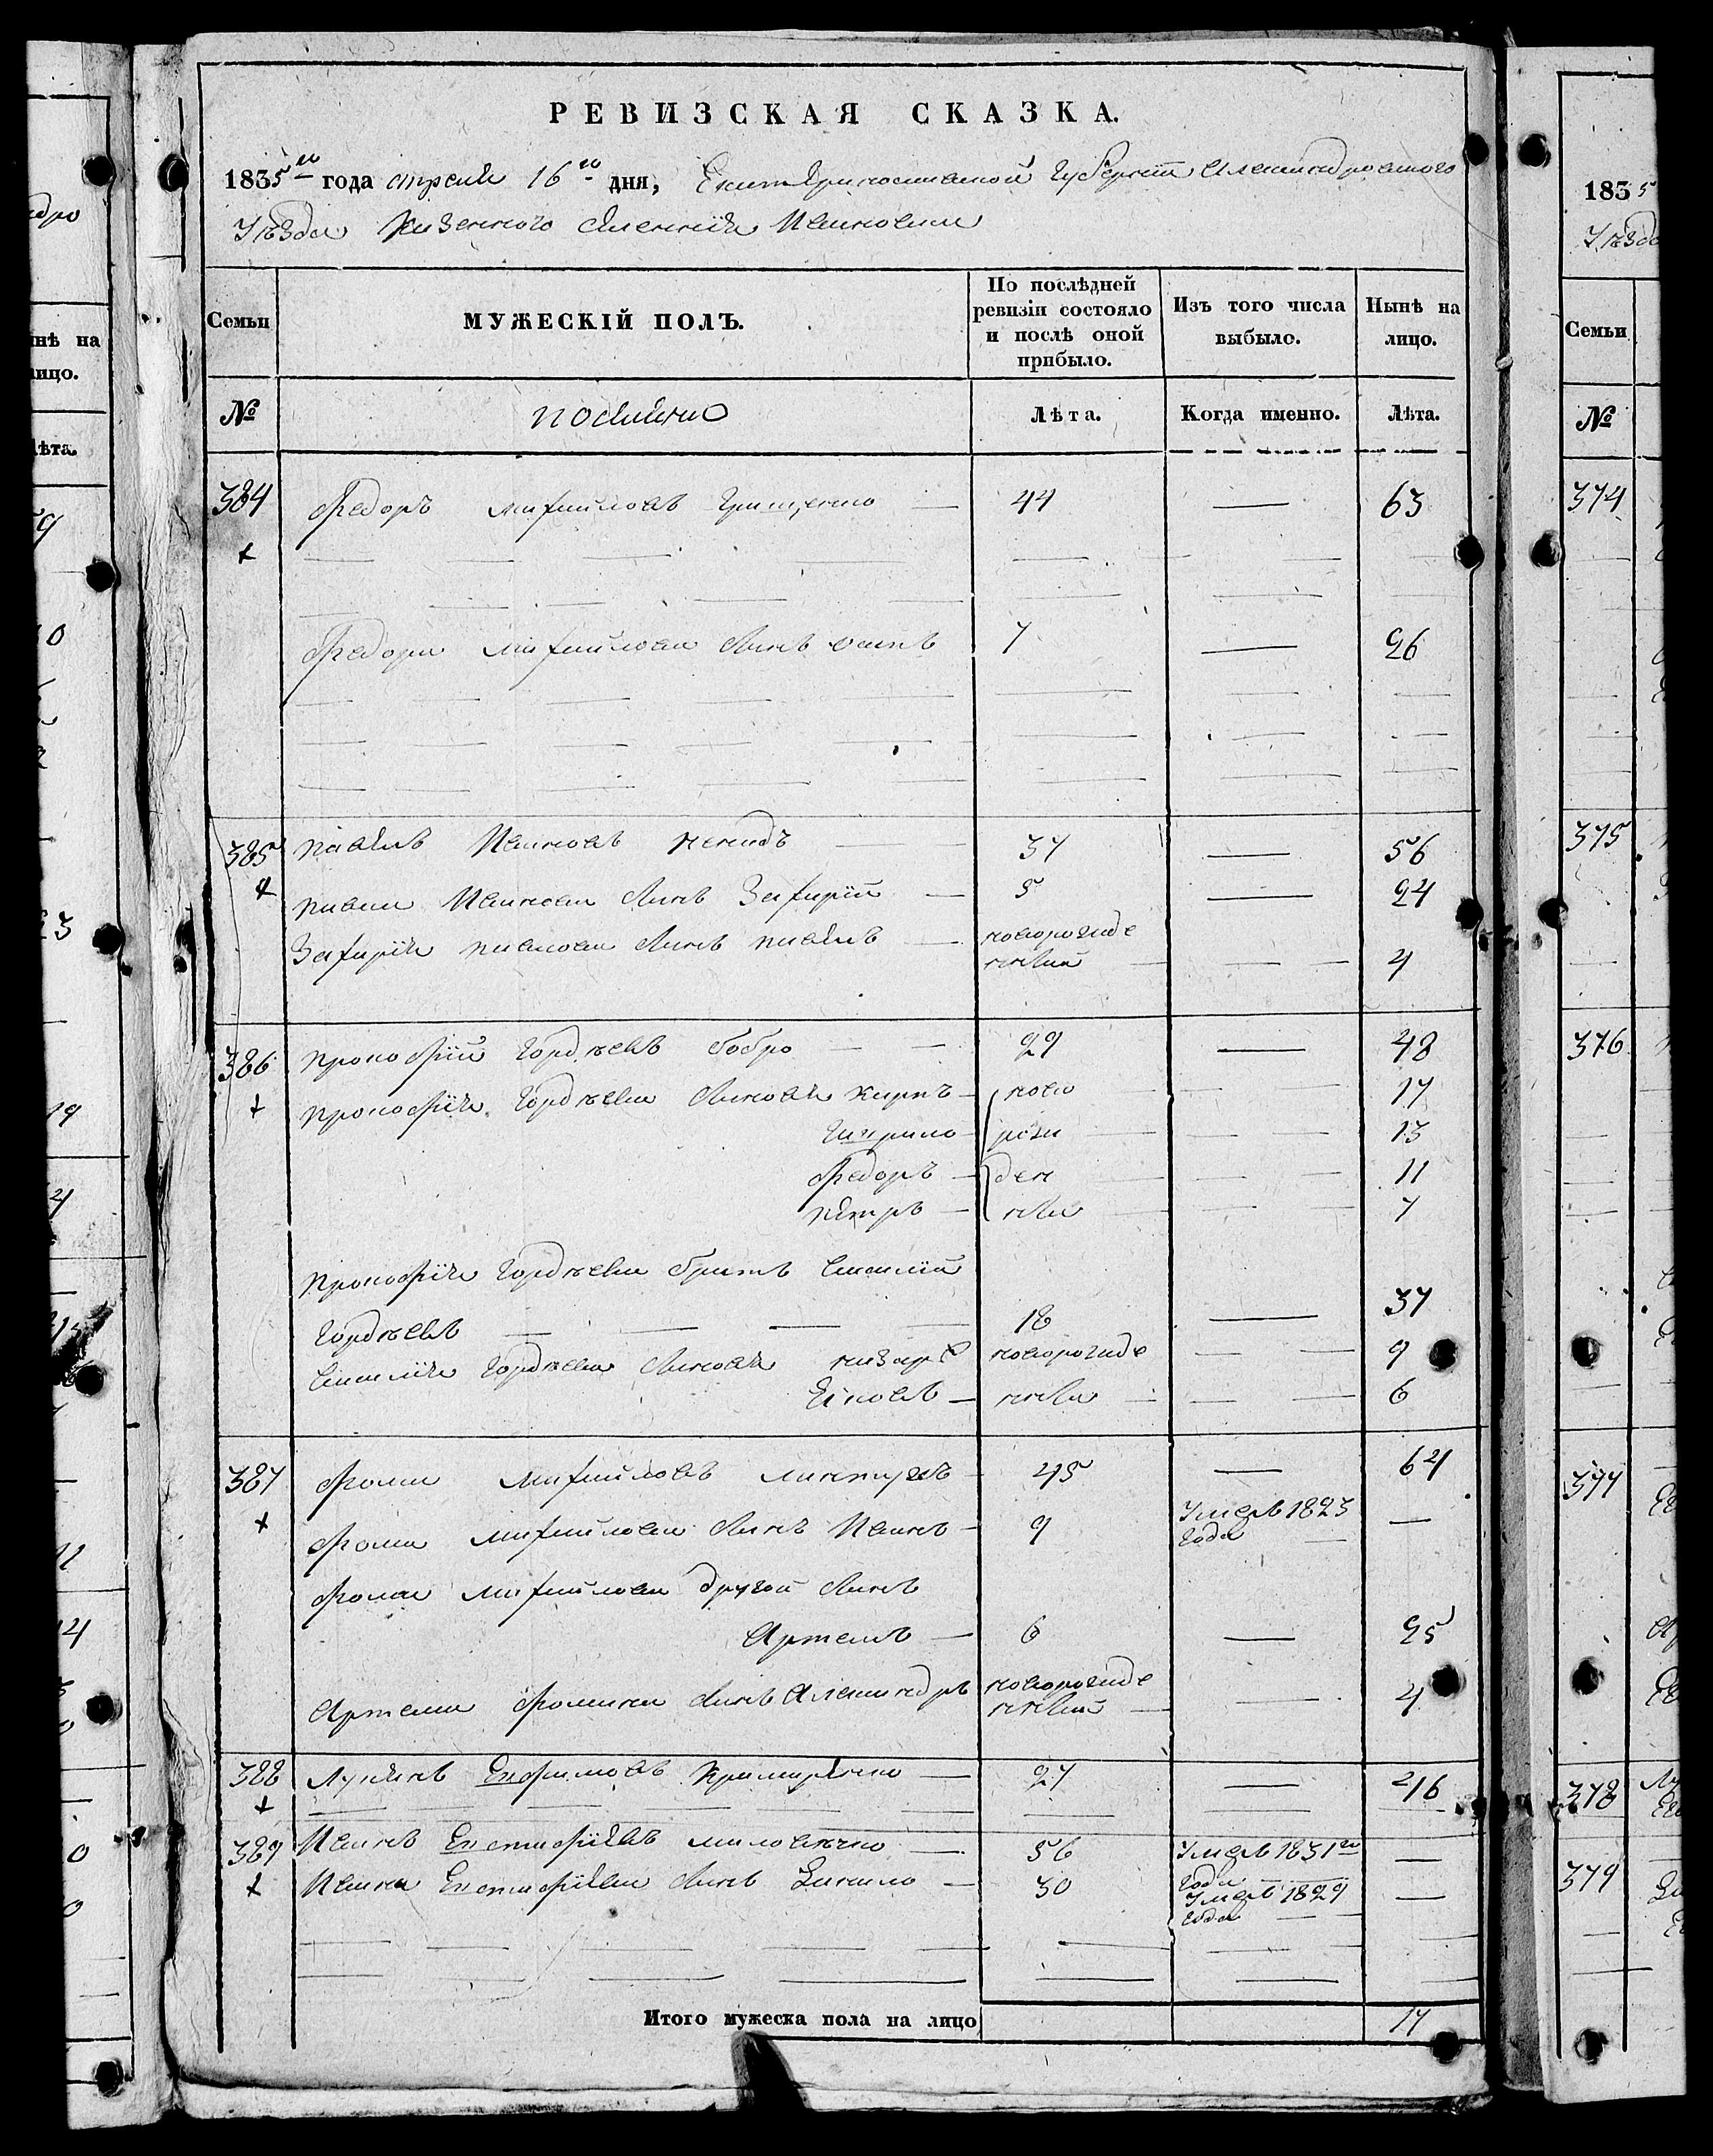 РЕВИЗСКАЯ СКАЗКА.
1835го года апреля 16го дня, Екатеринославской Губернии Александровского
Уѣзда Казенного селения Ивановки
Семьи
МУЖЕСКІЙ ПОЛЪ.
По послѣдней ревизіи состояло и послѣ оной прибыло.
Изъ того числа выбыло.
Нынѣ на лицо.
№
Лѣта.
Когда именно.
Лѣта.
384 Федоръ Михайловъ Грищенко 44 63
Федора Михайлова сынъ 7 26
385 Павелъ Ивановъ 37 56
Павла Ивана сынъ Захарій 5 24
Захарія Павлова сынъ Павелъ новорожде
нный 4
386 Прокофій Гордѣевъ Бобро 29 48
Прокофія Гордѣева сыновья Карпъ ново 17
Гаврило рож 13
Федоръ ден 11
Петръ ные 7
Прокофія Гордѣева братъ Василій
Гордѣевъ 18 37
Василія Гордѣева сыновья Назаръ новорожде 9
Яковъ нные 6
387 Фома Михайловъ 45 64
Фомы Михайлова сынъ Иванъ 9 Умеръ 1823
года
Фомы Михайлова другой сынъ
Артемъ 6 25
Артема Фомина сынъ Александръ новорожде
нный 4
388 Лукьянъ Евфимовъ 27 46
389 Иванъ Евстафіевъ 56 Умеръ 1831го
года
Ивана Евстафіева сынъ Данило 30 Умеръ 1829
года
Итого мужеска пола на лицо 17
нѣ на
лицо.
лѣта.
1835
Уѣзда
Семьи
№
374
375
376
377
378
379